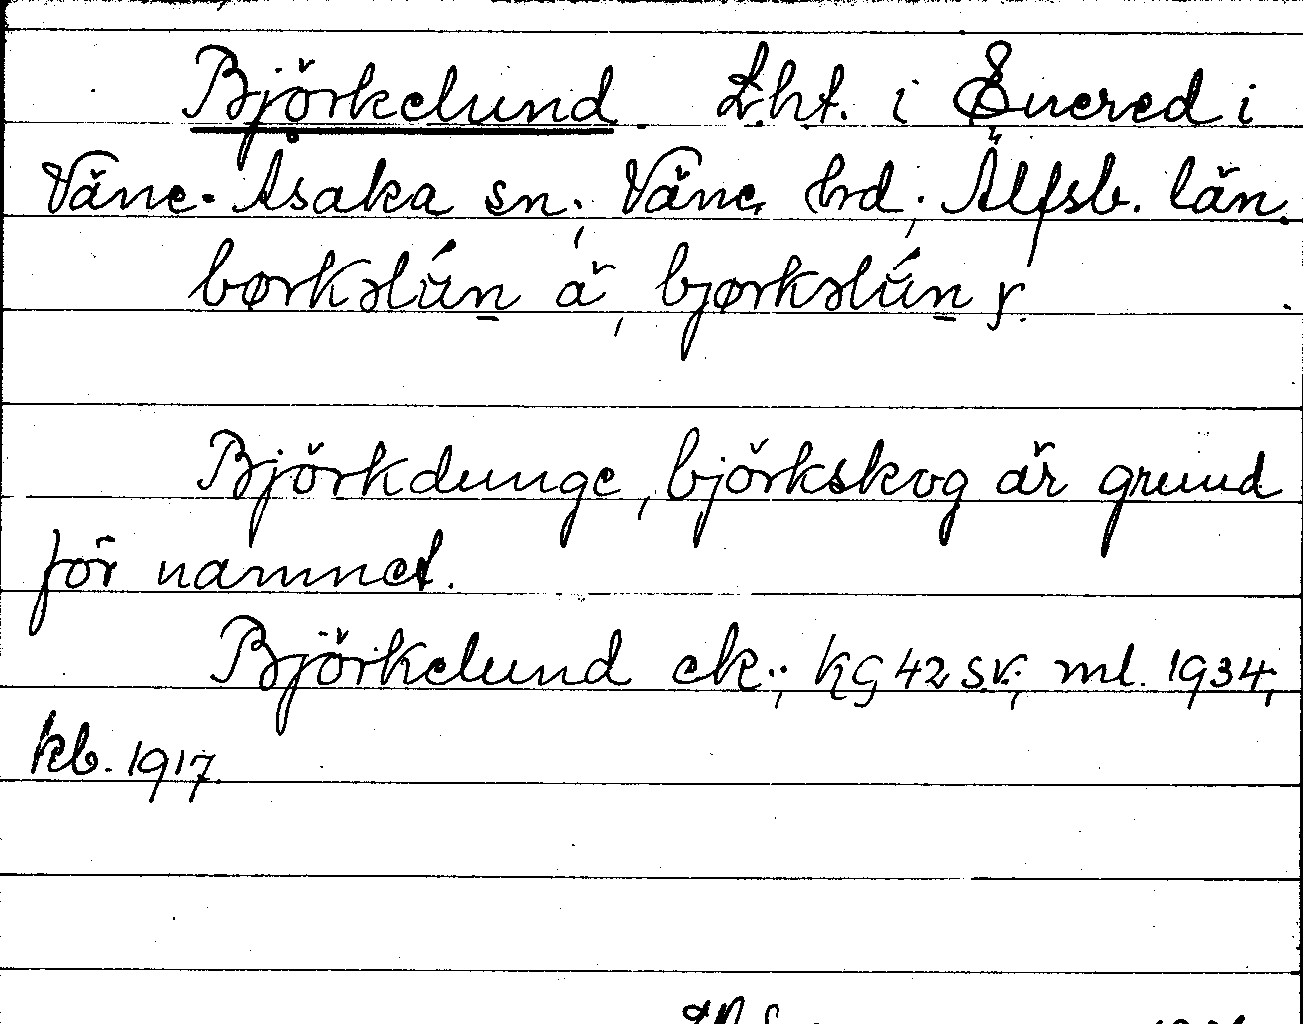 Björkelund. Lht. i Snered i
Väne-Åsaka sn; Väne hd; Älfsb. län.
børkəlún ä, bjørkəlún y.
Björkdunge, björkskog är grund
för namnet.
Björkelund ek.; KG 42 sv; ml. 1934,
kb. 1917.